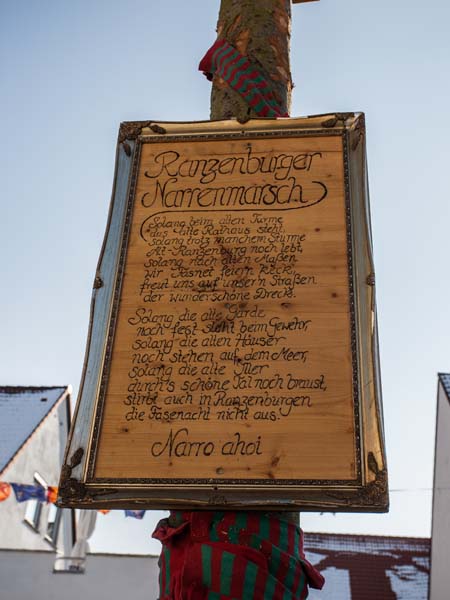 Ranzenburger
Narrenmarsch
Solang beim alten Turme
das alte Rathaus steht,
solang trotz manchem Sturme
Alt-Ranzenburg noch lebt,
solang nach alten Maßen
wir Fasnet feiern keck,
freut uns auf unser'n Straßen
der wunderschöne Dreck.
Solang die alte Garde
noch fest steht beim Gewehr,
solang die alten Häuser
noch stehen auf dem Meer,
solang die alte Iller
durch's schöne Tal noch braust,
stirbt auch in Ranzenburgen
die Fasenacht nicht aus.
Narro ahoi